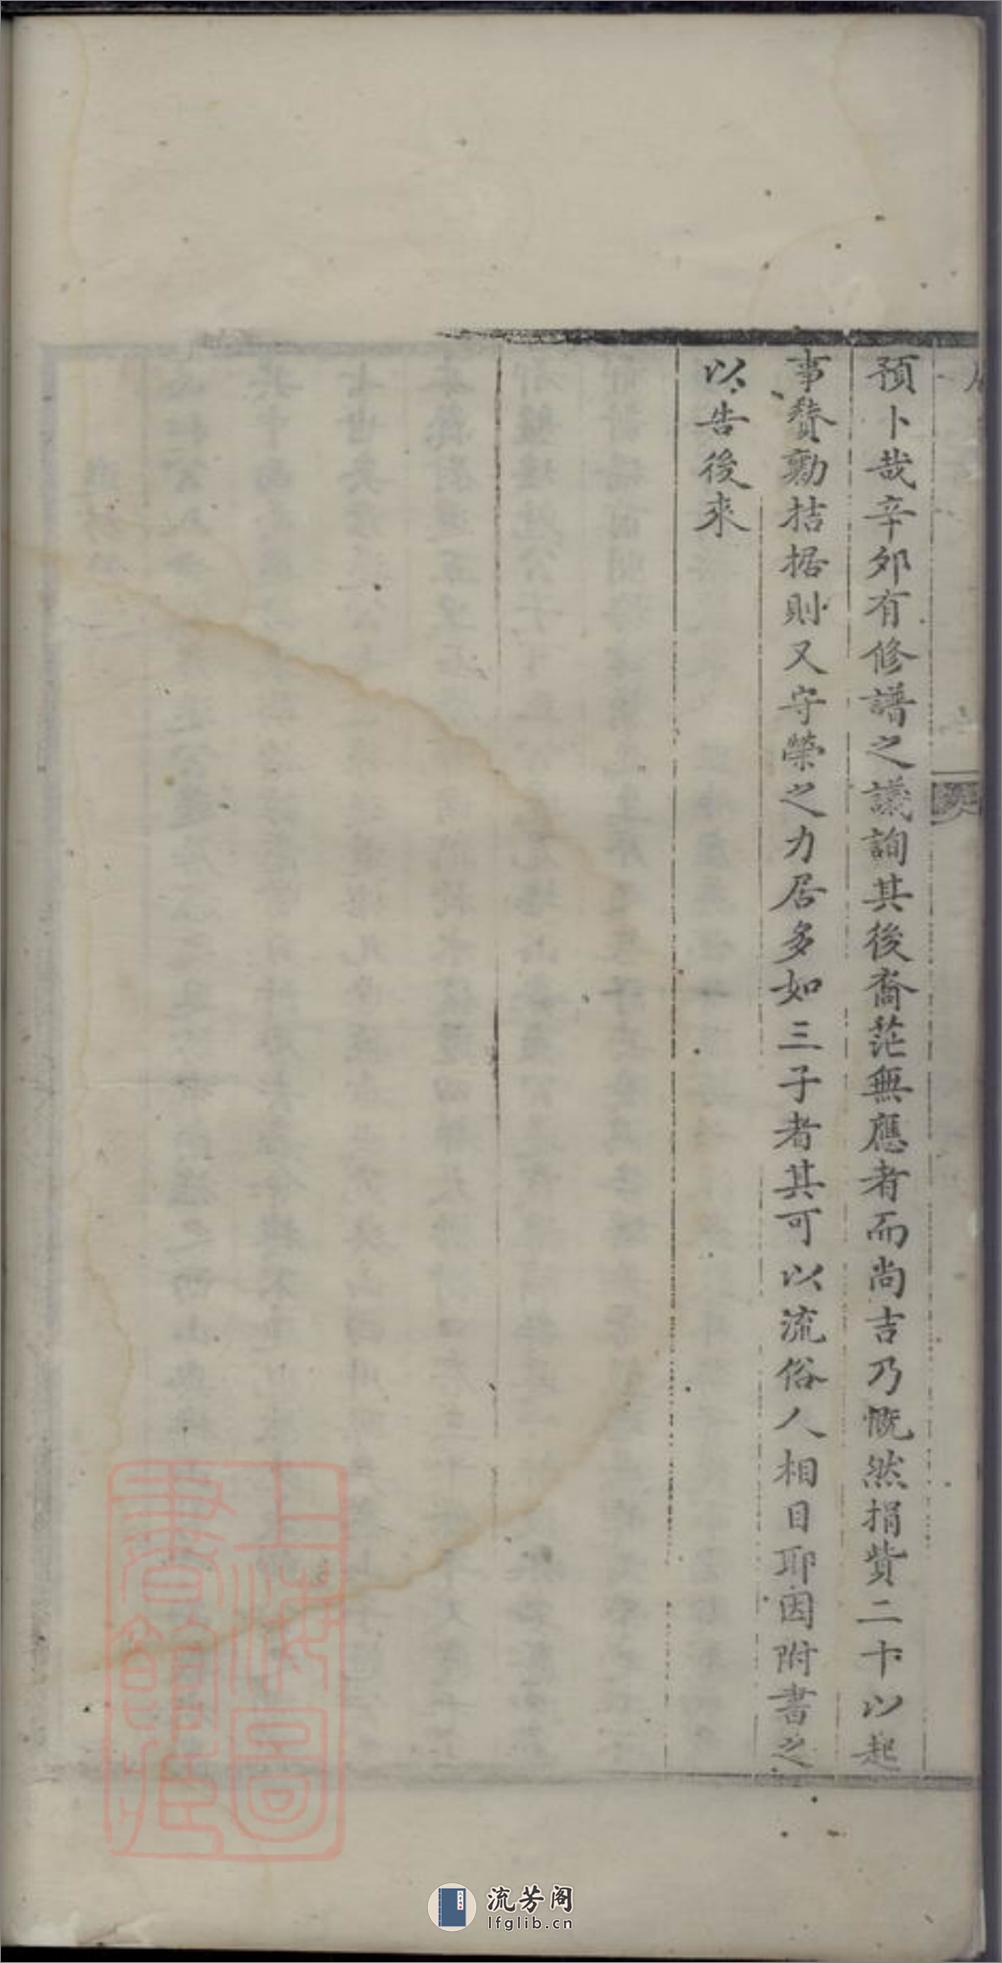 預卜哉辛卯有修譜之議詢其後裔茫無應者而尚吉乃慨然捐貲二十以起
事贊勷拮据則又守榮之力居多如三子者其可以流俗人相目耶因附書之
以告後來
上海圖
書館藏
流芳阁
lfglib.cn